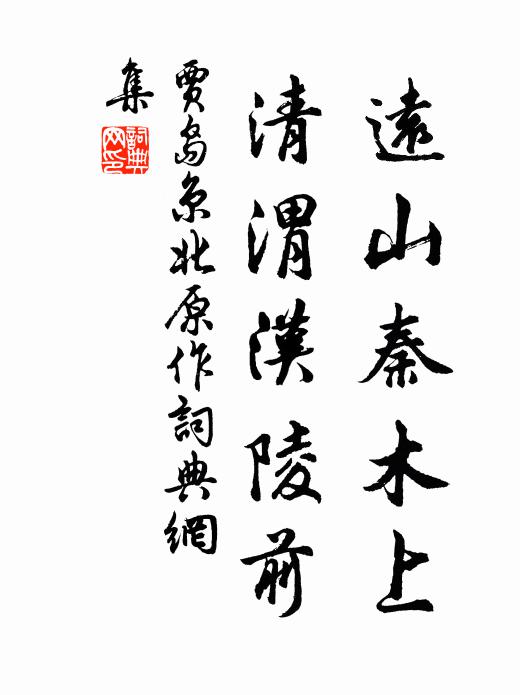 遠山秦木上
清渭漢陵前
賈島京北原作詞典網
集
詞典網印